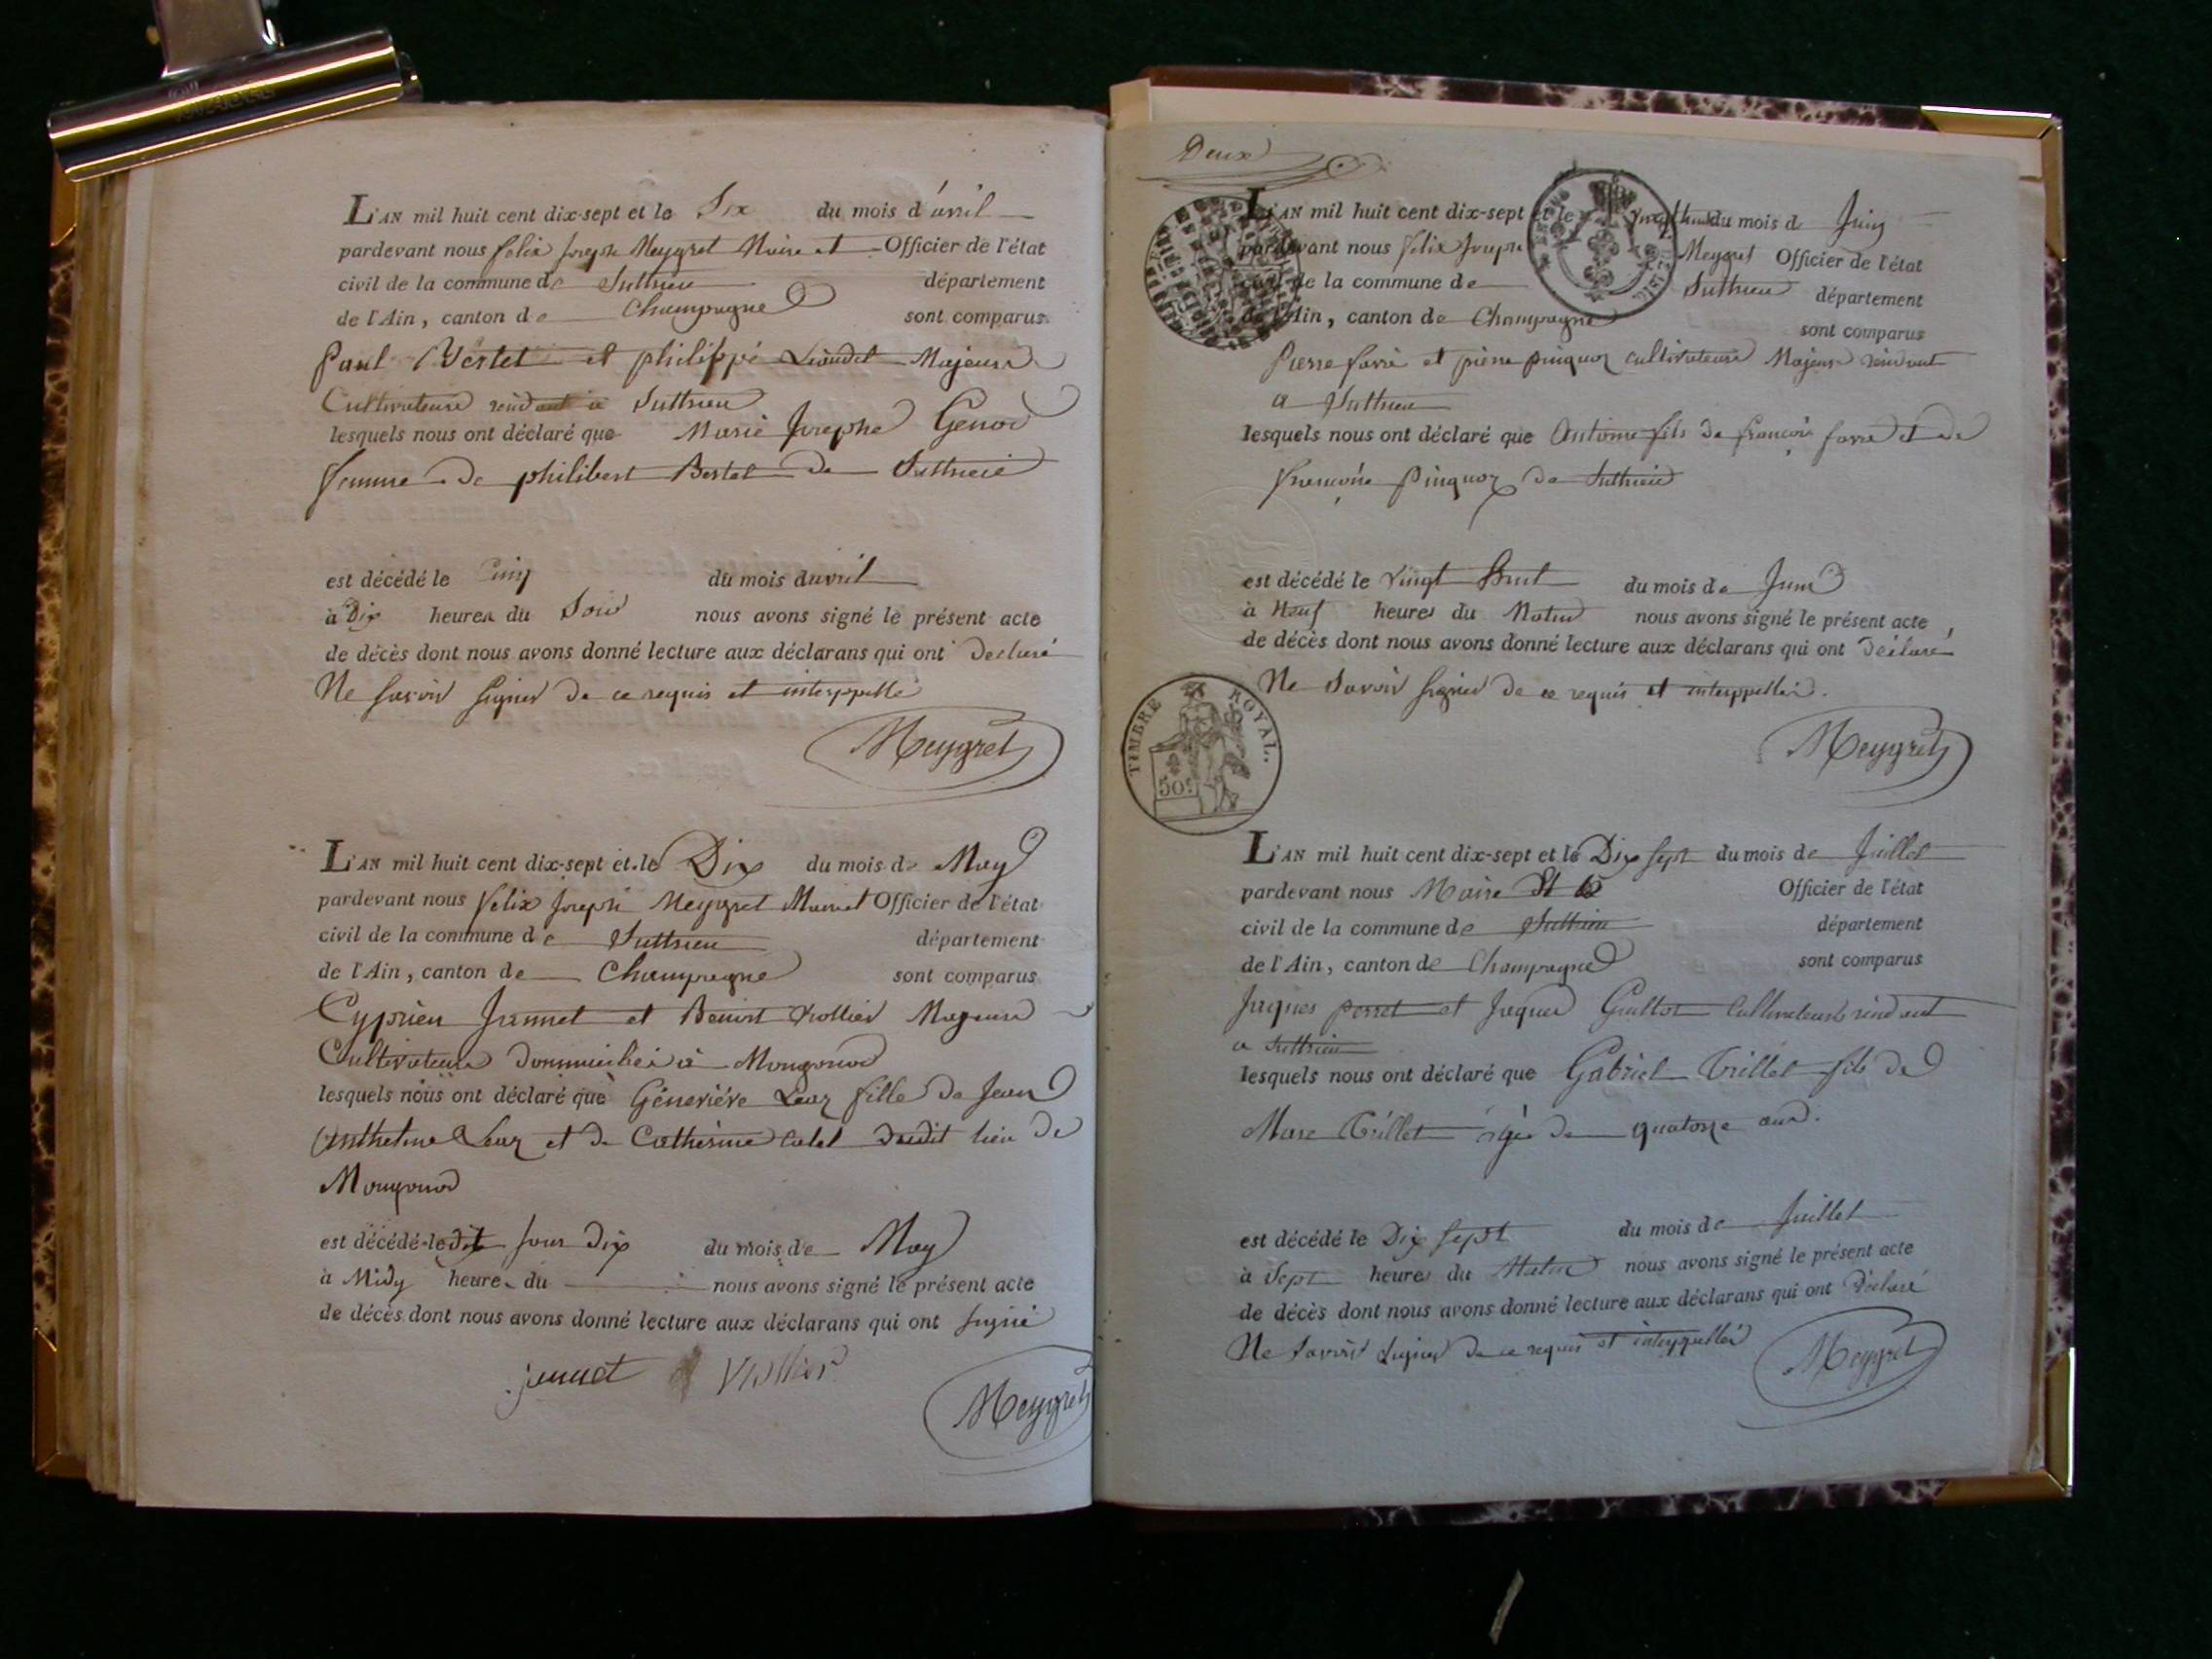 L'AN mil huit cent dix-sept et le Six du mois d'avril
pardevant nous felix Joseph Meygret Maire et Officier de l'état
civil de la commune de Suttrieu département
de l'Ain, canton de Champagne sont comparus
Paul Bertet et philippe Majeurs
Cultivateurs résidant à Suttrieu
lesquels nous ont déclaré que Marie Josephe Genod
femme de philibert Bertet de Suttrieu
est décédé le Cinq du mois d'avril
à Dix heures du Soir nous avons signé le présent acte
de décès dont nous avons donné lecture aux déclarans qui ont declaré
Ne savoir signer de ce requis et interppellé
Meygret
L'AN mil huit cent dix-sept et le Dix du mois de May
pardevant nous felix Joseph Meygret Maire et Officier de l'état
civil de la commune de Suttrieu département
de l'Ain, canton de Champagne sont comparus
Cyprien Jannet et Benoit Majeurs
Cultivateurs à Mongonod
lesquels nous ont déclaré que Géneviève Leur fille de Jean
Anthelme Leur et de Catherine dudit lieu de
Mongonod
est décédé le dit jour Dix du mois de May
à Midy heure du nous avons signé le présent acte
de décès dont nous avons donné lecture aux déclarans qui ont signé
Meygret
Deux
L'AN mil huit cent dix-sept et le vingt huit du mois de Juin
pardevant nous felix Joseph Meygret Officier de l'état
civil de la commune de Suttrieu département
de l'Ain, canton de Champagne sont comparus
Pierre favre et pierre pinquoz cultivateurs Majeurs résidant
a Suttrieu
lesquels nous ont déclaré que Antoine fils de françois favre et de
françoise Pinquoz de Suttrieu
est décédé le vingt huit du mois de Juin
à Neuf heures du Matin nous avons signé le présent acte
de décès dont nous avons donné lecture aux déclarans qui ont déclaré
Ne Savoir signer de ce requis et interppellés.
TIMBRE ROYAL.
50c
Meygret
L'AN mil huit cent dix-sept et le Dix sept du mois de Juillet
pardevant nous Maire Et Officier de l'état
civil de la commune de Suttrieu département
de l'Ain, canton de Champagne sont comparus
Jaques perret et Jaques Guillot Cultivateurs résidant
a Suttrieu
lesquels nous ont déclaré que Gabriel Trillet fils de
Marc Trillet âgé de quatorze ans.
est décédé le Dix sept du mois de Juillet
à Sept heures du Matin nous avons signé le présent acte
de décès dont nous avons donné lecture aux déclarans qui ont Déclaré
Ne savoir signer de ce requis et interppellés
Meygret